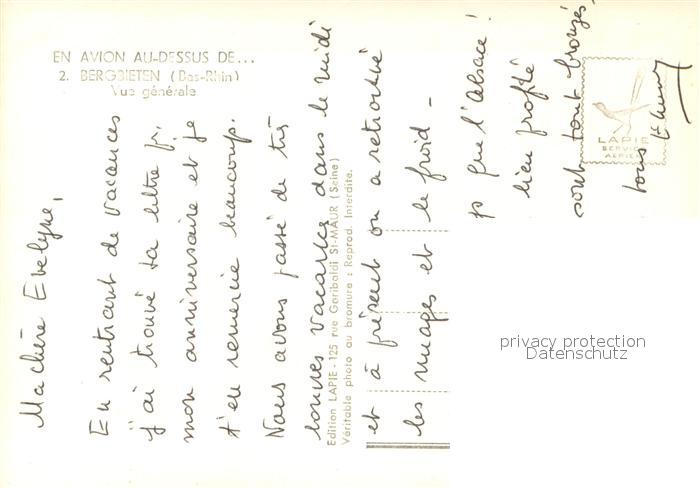 EN AVION AU-DESSUS DE...
2. BERGBIETEN (Bas-Rhin)
Vue générale
Ma chère Evelyne,
En rentrant de vacances
j'ai trouvé ta lettre pr.
mon anniversaire et je
t'en remercie beaucoup.
Nous avons passé de très
bonnes vacances dans le midi
et à présent on a retrouvé
les nuages et le froid -
que l'alsace!
bien profité
sont tout bronzés,
tous
Edition LAPIE - 125 rue Garibaldi St-MAUR (Seine)
Véritable photo au bromure : Reprod. Interdite.
LAPIE
SERVICE
AERIEN
privacy protection
Datenschutz